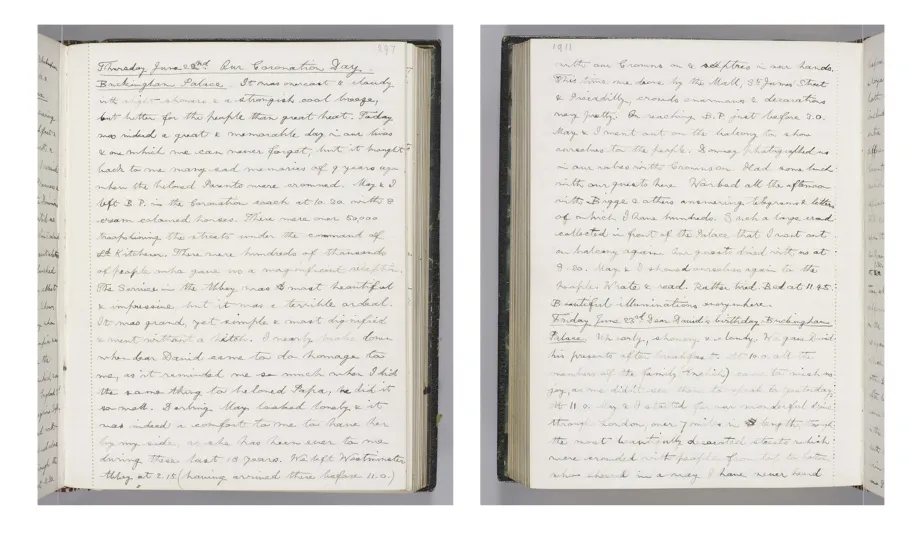 297
Thursday June 22nd Our Coronation Day.
Buckingham Palace. It was overcast & cloudy
with slight showers & a strongish cool breeze,
but better for the people than great heat. Today
was indeed a great & memorable day in our lives
& one which we can never forget, but it brought
back to me many sad memories of 9 years ago
when the beloved Parents were crowned. May & I
left B.P. in the Coronation coach at 10.30 with 8
cream coloured horses. There were over 50,000
troops lining the streets under the command of
Ld. Kitchener. There were hundreds of thousands
of people who gave us a magnificent reception.
The Service in the Abbey was most beautiful
& impressive but it was a terrible ordeal.
It was grand, yet simple & most dignified
& went without a hitch. I nearly broke down
when dear David came to do homage to
me, as it reminded me so much when I did
the same thing to beloved Papa, he did it
so well. Darling May looked lovely & it
was indeed a comfort to me to have her
by my side, as she has been ever to me
during these last 18 years. We left Westminster
Abbey at 2.15 (having arrived there before 11.0)
1911
with our Crowns on & sceptres in our hands.
This time we drove by the Mall, St James' Street
& Piccadilly, crowds enormous & decorations
very pretty. On reaching B.P. just before 3.0.
May & I went out on the balcony to show
ourselves to the people. Downey photographed us
in our robes with Crowns on. Had some lunch
with our guests here. Worked all the afternoon
with Bigge & others answering telegrams & letters
of which I have hundreds. Such a large crowd
collected in front of the Palace that I went out
on balcony again. Our guests dined with us at
8.30. May & I showed ourselves again to the
people. Wrote & read. Rather tired. Bed at 11.45.
Beautiful illuminations everywhere.
Friday June 23rd. Dear David's birthday. Buckingham
Palace. Up early, showery & cloudy. We gave David
his presents after breakfast. At 10.0 all the
members of the family came to wish us
joy, as we didn't see them to speak to yesterday.
At 11.0. May & I started for our wonderful drive
through London, over 7 miles in length, through
the most beautifully decorated streets which
were crowded with people from top to bottom,
who cheered in a way I have never heard